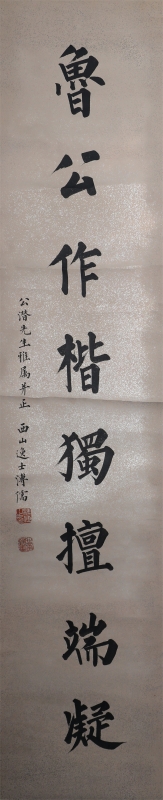 魯公作楷獨擅端凝
公潛先生雅屬并正 西山逸士溥儒